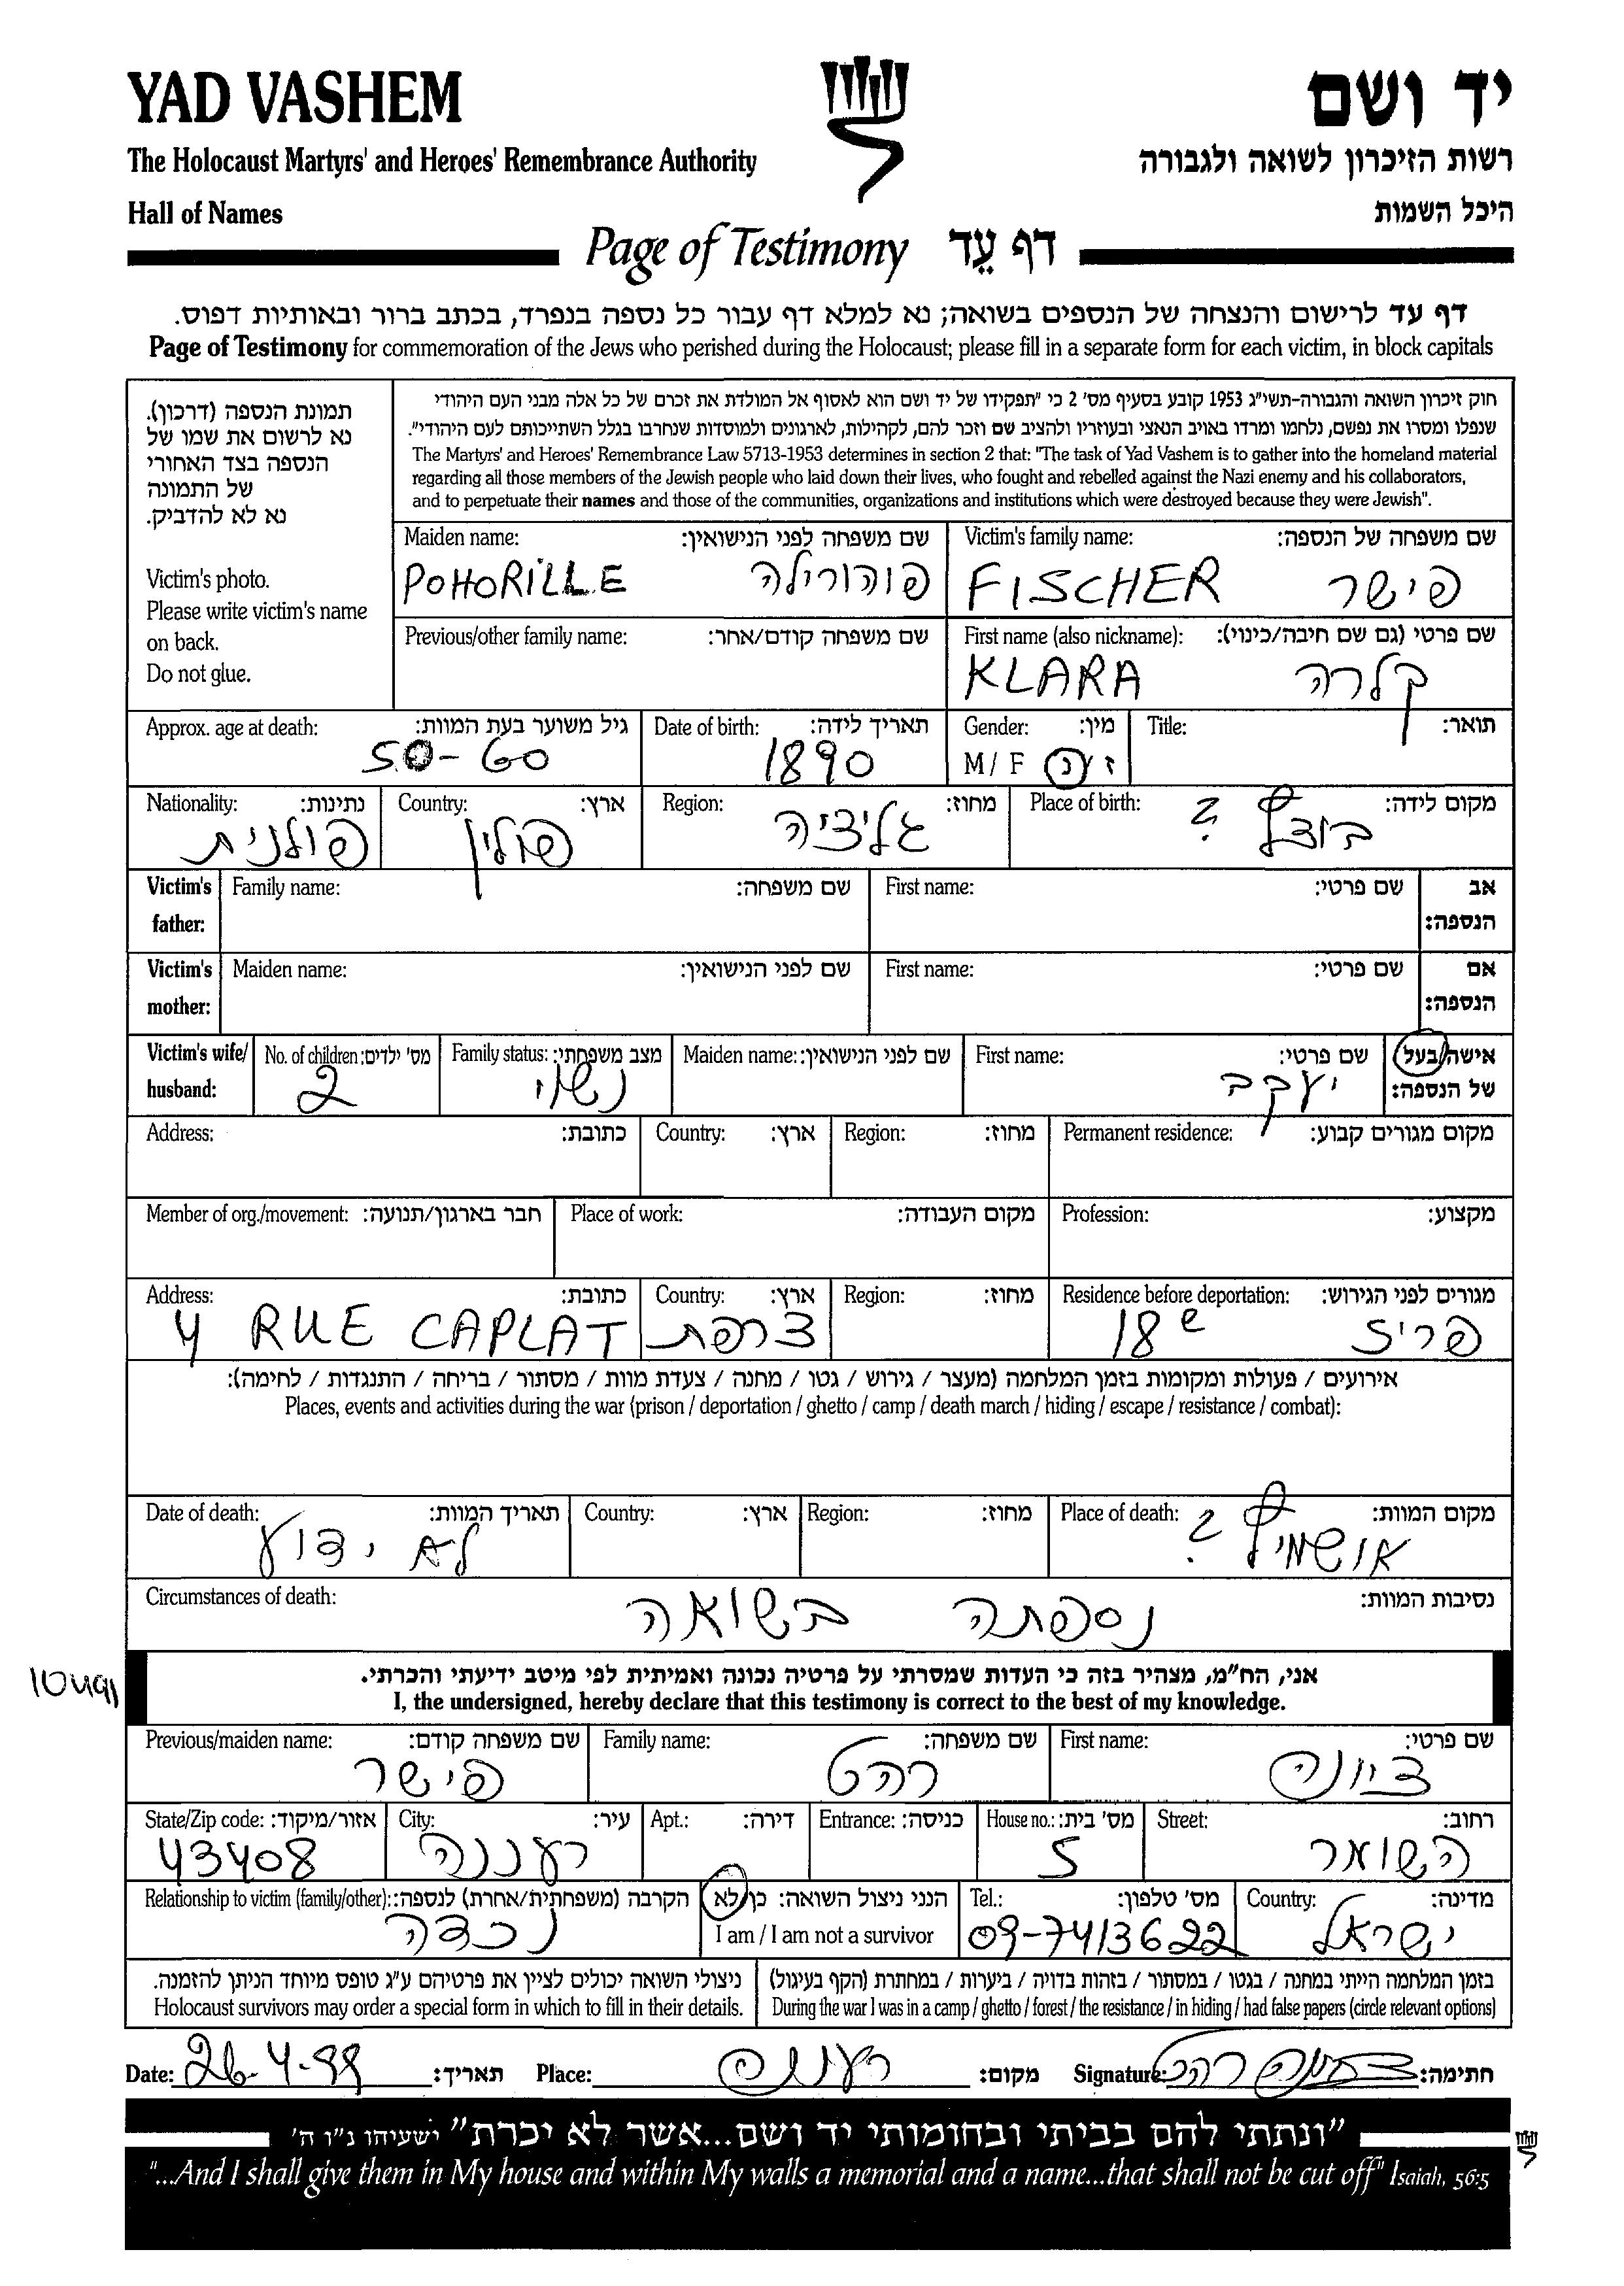 YAD VASHEM
יד ושם
The Holocaust Martyrs' and Heroes' Remembrance Authority
רשות הזיכרון לשואה ולגבורה
Hall of Names
היכל השמות
Page of Testimony דף עֵד
דף עד לרישום והנצחה של הנספים בשואה; נא למלא דף עבור כל נספה בנפרד, בכתב ברור ובאותיות דפוס.
Page of Testimony for commemoration of the Jews who perished during the Holocaust; please fill in a separate form for each victim, in block capitals
תמונת הנספה (דרכון).
נא לרשום את שמו של
הנספה בצד האחורי
של התמונה
נא לא להדביק.
Victim's photo.
Please write victim's name
on back.
Do not glue.
חוק זיכרון השואה והגבורה-תשי"ג 1953 קובע בסעיף מס' 2 כי "תפקידו של יד ושם הוא לאסוף אל המולדת את זכרם של כל אלה מבני העם היהודי
שנפלו ומסרו את נפשם, נלחמו ומרדו באויב הנאצי ובעוזריו ולהציב שם וזכר להם, לקהילות, לארגונים ולמוסדות שנחרבו בגלל השתייכותם לעם היהודי".
The Martyrs' and Heroes' Remembrance Law 5713-1953 determines in section 2 that: "The task of Yad Vashem is to gather into the homeland material
regarding all those members of the Jewish people who laid down their lives, who fought and rebelled against the Nazi enemy and his collaborators,
and to perpetuate their names and those of the communities, organizations and institutions which were destroyed because they were Jewish".
Victim's family name: שם משפחה של הנספה:
FISCHER פישר
Maiden name: שם משפחה לפני הנישואין:
POHORILLE פוהורילה
First name (also nickname): שם פרטי (גם שם חיבה/כינוי):
KLARA קלרה
Previous/other family name: שם משפחה קודם/אחר:
Title: תואר:
Gender: מין:
M / F ז / נ
Date of birth: תאריך לידה:
1890
Approx. age at death: גיל משוער בעת המוות:
50-60
Place of birth: מקום לידה:
? בוצץ
Region: מחוז:
גליציה
Country: ארץ:
פולין
Nationality: נתינות:
פולנית
Victim's father: אב הנספה:
First name: שם פרטי:
Family name: שם משפחה:
Victim's mother: אם הנספה:
First name: שם פרטי:
Maiden name: שם לפני הנישואין:
Victim's wife/ husband: אישה/בעל של הנספה:
First name: שם פרטי:
יעקב
Maiden name: שם לפני הנישואין:
Family status: מצב משפחתי:
נשוי
No. of children: מס' ילדים:
2
Permanent residence: מקום מגורים קבוע:
Region: מחוז:
Country: ארץ:
Address: כתובת:
Profession: מקצוע:
Place of work: מקום העבודה:
Member of org./movement: חבר בארגון/תנועה:
Residence before deportation: מגורים לפני הגירוש:
18e פריז
Region: מחוז:
Country: ארץ:
צרפת
Address: כתובת:
4 RUE CAPLAT
אירועים / פעולות ומקומות בזמן המלחמה (מעצר / גירוש / גטו / מחנה / צעדת מוות / מסתור / בריחה / התנגדות / לחימה):
Places, events and activities during the war (prison / deportation / ghetto / camp / death march / hiding / escape / resistance / combat):
Place of death: מקום המוות:
? אושוויץ
Region: מחוז:
Country: ארץ:
Date of death: תאריך המוות:
לא ידוע
Circumstances of death: נסיבות המוות:
נספתה בשואה
אני, הח"מ, מצהיר בזה כי העדות שמסרתי על פרטיה נכונה ואמיתית לפי מיטב ידיעתי והכרתי.
I, the undersigned, hereby declare that this testimony is correct to the best of my knowledge.
First name: שם פרטי:
ציונה
Family name: שם משפחה:
רהט
Previous/maiden name: שם משפחה קודם:
פישר
Street: רחוב:
השומר
House no.: מס' בית:
5
Entrance: כניסה:
Apt.: דירה:
City: עיר:
רעננה
State/Zip code: אזור/מיקוד:
43408
Country: מדינה:
ישראל
Tel.: מס' טלפון:
09-7413622
הנני ניצול השואה: כן/לא
I am / I am not a survivor
Relationship to victim (family/other): הקרבה (משפחתית/אחרת) לנספה:
נכדה
בזמן המלחמה הייתי במחנה / בגטו / במסתור / בזהות בדויה / ביערות / במחתרת (הקף בעיגול)
During the war I was in a camp / ghetto / forest / the resistance / in hiding / had false papers (circle relevant options)
ניצולי השואה יכולים לציין את פרטיהם ע"ג טופס מיוחד הניתן להזמנה.
Holocaust survivors may order a special form in which to fill in their details.
Date: 26-4-99 תאריך: Place: רעננה מקום: Signature: ציונה רהט חתימה:
"ונתתי להם בביתי ובחומותי יד ושם...אשר לא יכרת" ישעיהו נ"ו ה'
"...And I shall give them in My house and within My walls a memorial and a name...that shall not be cut off" Isaiah, 56:5